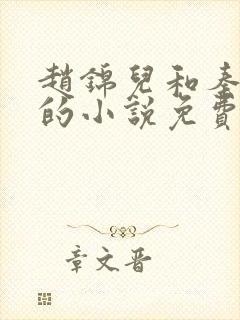 趙錦兒和秦
的小說免費
章文晉